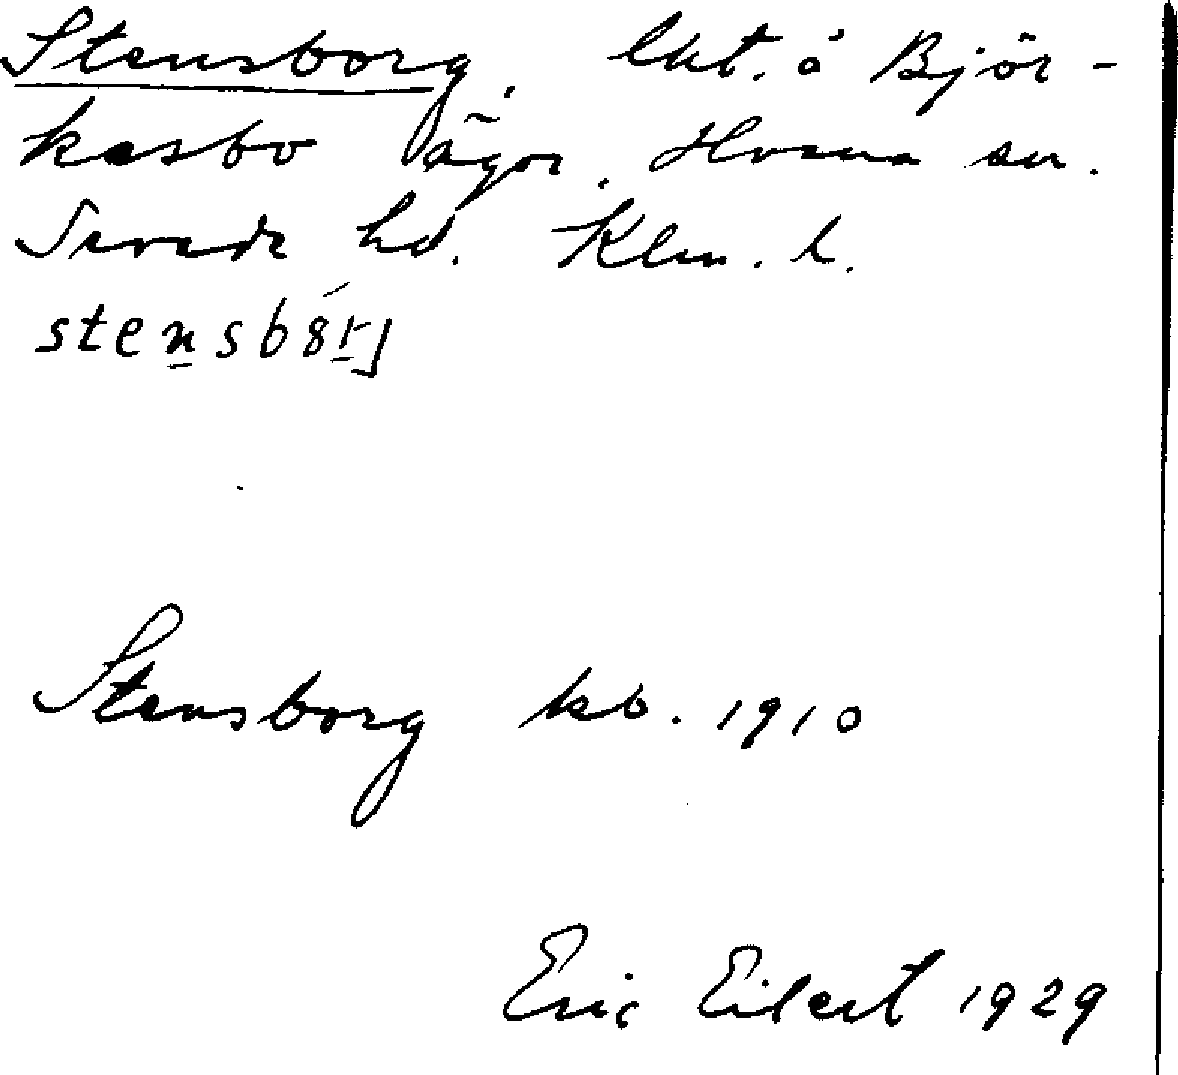 Stensborg, lht. å Björ-
kesbo ägor. Hvena sn.
Sevede hd. Klm. l.
Stensborg kb. 1910
Eric Eilert 1929